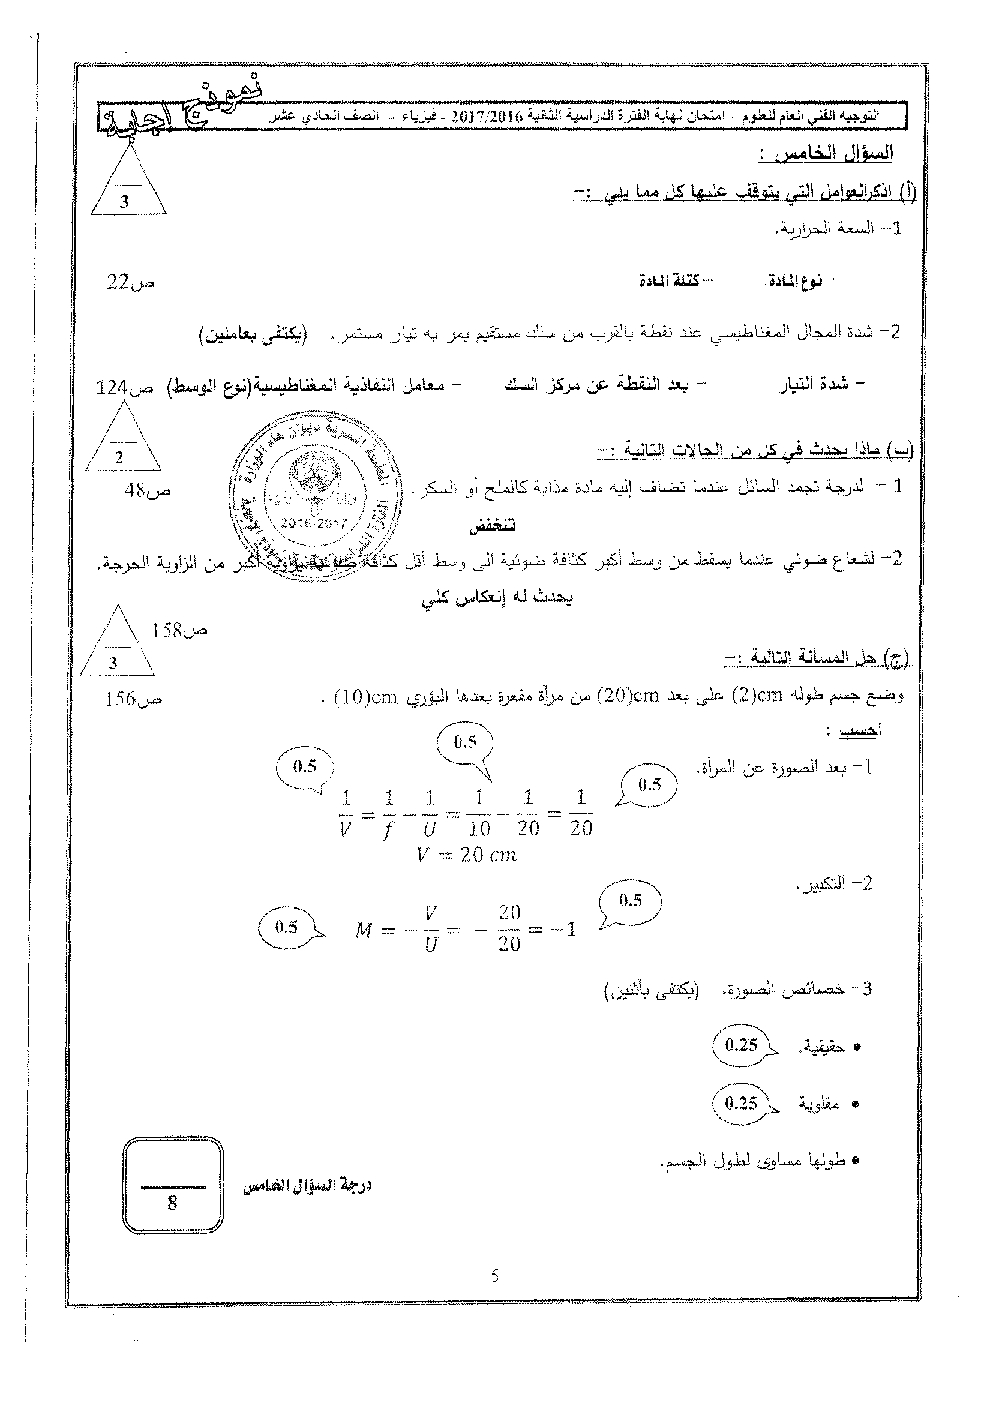 نموذج اجابة
التوجيه الفني العام للعلوم - امتحان نهاية الفترة الدراسية الثانية 2017/2016 - فيزياء - الصف الحادي عشر
السؤال الخامس :
(أ) اذكر العوامل التي يتوقف عليها كل مما يلي :-
3
1- السعة الحرارية.
نوع المادة. - كتلة المادة ص22
2- شدة المجال المغناطيسي عند نقطة بالقرب من سلك مستقيم يمر به تيار مستمر. (يكتفى بعاملين)
- شدة التيار - بعد النقطة عن مركز السلك - معامل النفاذية المغناطيسية(نوع الوسط) ص124
(ب) ماذا يحدث في كل من الحالات التالية :-
2
1 - لدرجة تجمد السائل عندما تضاف إليه مادة مذابة كالملح أو السكر. ص48
تنخفض
2016-2017
2- لشعاع ضوئي عندما يسقط من وسط أكبر كثافة ضوئية الى وسط أقل كثافة ضوئية بزاوية أكبر من الزاوية الحرجة.
يحدث له إنعكاس كلي
ص158
(ج) حل المسألة التالية :-
3
وضع جسم طوله 2)cm) على بعد 20)cm) من مرآة مقعرة بعدها البؤري 10)cm) . ص156
أحسب :
1- بعد الصورة عن المرآة.
0.5 0.5 0.5
1/V = 1/f - 1/U = 1/10 - 1/20 = 1/20
V = 20 cm
2- التكبير.
0.5 M = - V/U = - 20/20 = -1 0.5
3- خصائص الصورة. (يكتفى بأثنين)
• حقيقية. 0.25
• مقلوبة 0.25
• طولها مساوى لطول الجسم.
درجة السؤال الخامس
8
5